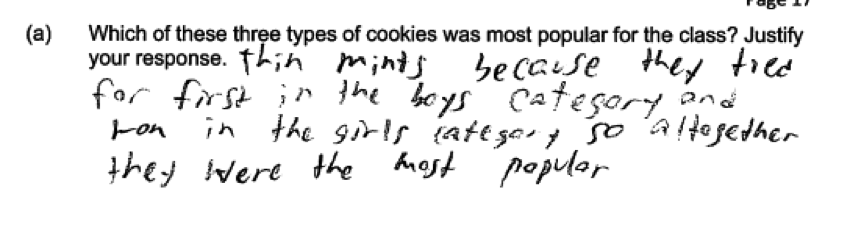 (a) Which of these three types of cookies was most popular for the class? Justify
your response. thin mints because they tied
for first in the boys category and
won in the girls category so altogether
they were the most popular